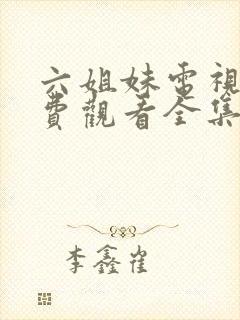 六姐妹電視
費觀看全集
李鑫崔